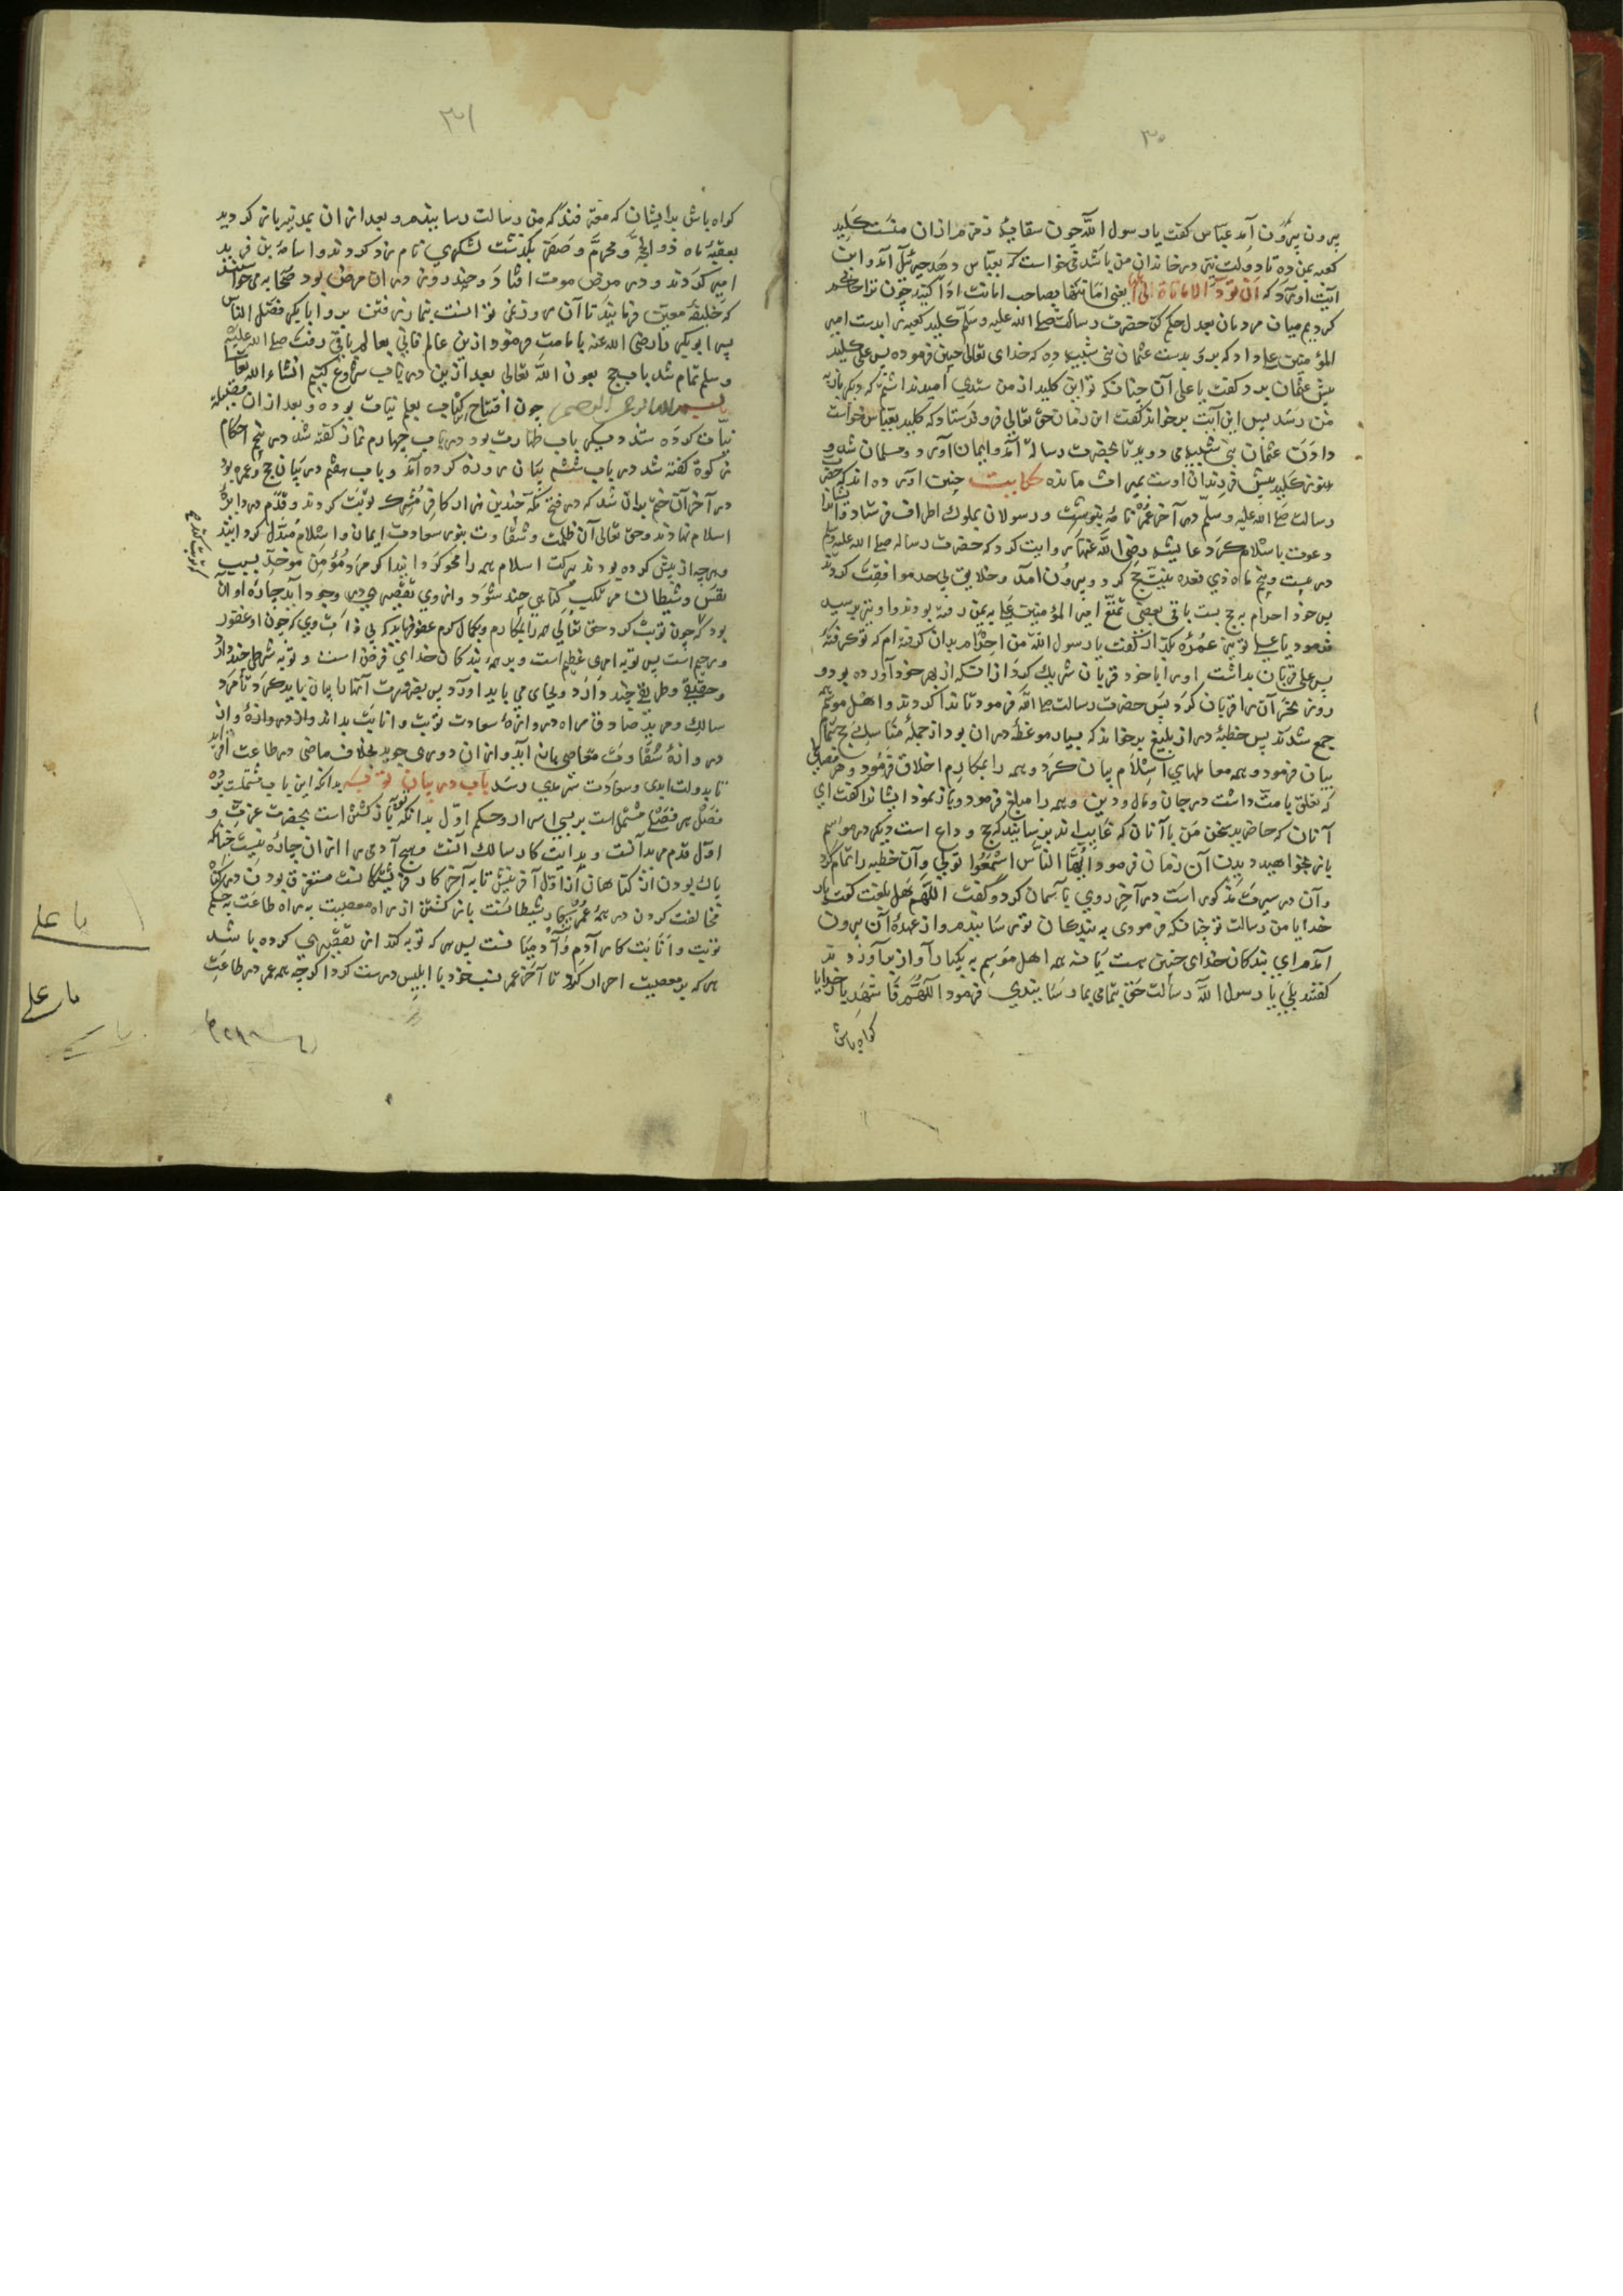 ۳۰
برون بیرون آمد عباس کفت یا رسول الله جون سقایه زمزم از ان منست کلید
کعبه بمن ده تا دولت نیز در خاندان من باشد می خواست که بعباس دهد جبرئیل آمد و این
آیت آورد که ان تؤدوا الامانات الی اهلها یعنی امانتها بصاحب امانت ادا کنید جون ترا حاکم
کردیم میان مردمان بعدل حکم کن حضرت رسالت صلی الله علیه وسلم کلید کعبه را بدست امیر
المؤمنین علی داد که برو بدست عثمان بنی شیبه ده که خدای تعالی جنین فرموده پس علی کلید
پیش عثمان برد و کفت یا علی آن جنانکه تو این کلید از من ستدی امید نداشتم که دیکر باره
من رسد پس این آیت برخواند کفت این زمان حق تعالی فرو فرستاد که کلید بعباس خواست
دادن عثمان بنی شیبه می دوید تا بحضرت رسالة آمد و ایمان آورد و مسلمان شد و
هنوز کلید پیش فرزندان اوست بمیراث مانده حکایت جنین آورده اند که حضرت
رسالت صلی الله علیه وسلم در آخر عمر نامه بنوشت و رسولان بملوک اطراف فرستاد و ایشانرا
دعوت باسلام کرد عایشه رضی الله عنها روایت کرد که حضرت رساله صلی الله علیه وسلم
در بیست و پنج ماه ذی قعده بنیت حج کرد و بیرون آمد و خلایق بی حد موافقت کردند
پس خود احرام به حج بست باقی بعضی تمتع امیر المؤمنین علی به یمن رفته بودند و او نیز برسید
فرمود یا علی تو نیز عمره بکذار کفت یا رسول الله من احرام بدان کرفته ام که تو کرفتهٔ
پس علی قربان نداشت او را با خود قربان شریک کرد از انکه از بهر خود آورده بود و
روز نحر آن را قربان کرد پس حضرت رسالت صلی الله فرمود تا ندا کردند و اهل موسم
جمع شدند پس خطبهٔ دراز بلیغ برخواند که بسیار موعظهٔ در ان بود از جمله مناسک حج تمام
بیان فرمود و همه معاملهای اسلام بیان کرد و همه را بمکارم اخلاق فرمود و هر فصلی
که تعلق بامت داشت در جان و مال و دین و همه را مبلغ فرمود و باز نمود ایشانرا کفت ای
آنان که حاضرید سخن من باآنان که غایب اند برسانید که حج وداع است دیکر در موسم
باز نخواهید دیدن آن زمان فرمود ایها الناس اسمعوا قولی و آن خطبه را تمام کرد
و آن در سیرت مذکور است در آخر روی بآسمان کرد و کفت اللهم هل بلغت کفت بار
خدایا من رسالت تو جنانکه فرمودی به بندکان تو رسانیدم و از عهدهٔ آن بیرون
آمدم ای بندکان خدای جنین هست یا نه همه اهل موسم به یکبار آواز برآوردند
کفتند بلی یا رسول الله رسالت حق بتمامی بما رسانیدی فرمود اللهم فاشهد بار خدایا
کواه باش
۳۱
کواه باش بدایشان که معترفند که من رسالت رسانیدم و بعد از ان بمدینه باز کردید
بعقبهٔ ماه ذو الحجه و محرم و صفر بکذشت لشکری نام زد کردند و اسامه بن زید
امیر کردند و در مرض موت افتاد و چند روز در ان مرض بود صحابه می خواستند
که خلیفهٔ معین فرمایند تا آن روز نمی توانست بنماز رفتن برو ابابکر فصل الناس
پس ابوبکر را رضی الله عنه بامامت فرمود ازین عالم فانی بعالم باقی رفت صلی الله علیه
وسلم تمام شد باب حج بعون الله تعالی بعد ازین در باب شروع کنیم انشاء الله تعالی
بسم الله الرحمن الرحیم جون افتتاح کتاب بعلم نیات بوده و بعد از ان
نیات کرده شد و سیکر باب طهارت بود در باب جهارم نماز کفته شد در پنجم احکام
زکوة کفته شد در باب ششم بیان روزه کرده آمد و باب هفتم در بیان حج و عمره بود
در آخر آن ختم بدان شد که در فتح مکه جندین هزار کافر مشرک توبت کردند و قدم در دایرهٔ
اسلام نهادند و حق تعالی آن ظلمت و شقاوت بنور سعادت ایمان و اسلام مبدل کردانید
و هرچه از پیش کرده بودند ببرکت اسلام همه را محو کردانید اکر مرد مؤمن موحد بسبب
نفس و شیطان مرتکب کناهی چند شود و از وی تقصیری در وجود آید جارهٔ او آن
بود که جون توبت کرد حق تعالی همه را بمکارم و بکمال کرم عفو فرماید کریمی ذات وی که جون او غفور
و رحیم است پس توبه امری عظیم است و بر همه بندکان خدای فرض است و توبه شرطی چند دارد
و حقیقی و طریقی چند دارد و بجای می باید اورد پس بضرورت آنها را بیان باید کرد تا مرد
سالک و مرید صادق راه در وازهٔ سعادت توبت و انابت بداند و از در وازهٔ و از
در وازهٔ شقاوت معاصی باز آید و از ان دوری جوید بخلاف ماضی در طاعت افزاید
تا بدولت ابدی و سعادت سرمدی رسد باب در بیان توبه بدانکه این باب مشتملست بر ده
فصل هر فصلی مشتمل است بر بسی اسرار و حکم اول بدانکه توبه بازکشتن است بحضرت عزت و
اول قدم مریدانست و بدایت کار سالکانست و هیچ آدمی را از ان جاره نیست جنانکه
پاک بودن از کناهان از اول آفرینش تا به آخر کار فریشتکانست مستغرق بودن در کناه
مخالفت کردن در همهٔ عمر کار شیطانست باز کشتن از راه معصیت به راه طاعت بحکم
توبت و انابت کار آدم و آدمیانست پس هر که توبه کند از تقصیری کرده باشد
هر که بر معصیت اصرار کرد تا آخر عمر نسب خود با ابلیس درست کرد اکرچه همه عمر در طاعت
یا علی
یا علی